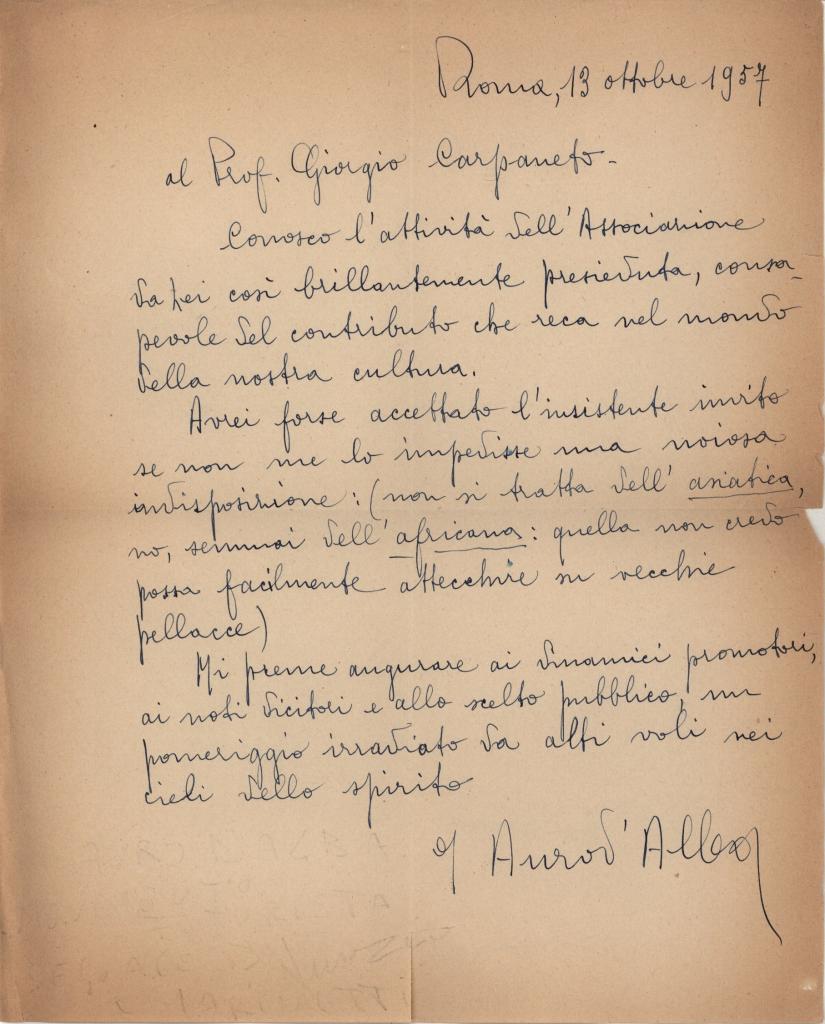 Roma, 13 ottobre 1957
al Prof. Giorgio Carpaneto-
Conosco l'attività dell'Associazione
da Lei così brillantemente presieduta, consa-
pevole del contributo che reca nel mondo
della nostra cultura.
Avrei forse accettato l'insistente invito
se non me lo impedisse una noiosa
indisposizione: (non si tratta dell'asiatica,
no, semmai dell'africana: quella non credo
possa facilmente attecchire su vecchie
pellacce)
Mi preme augurare ai dinamici promotori,
ai noti dicitori e allo scelto pubblico, un
pomeriggio irradiato da alti voli nei
cieli dello spirito
Auro d'Alba